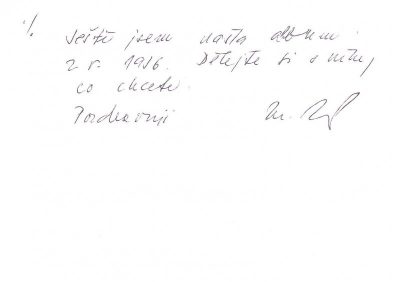 ·/.
Ještě jsem našla album
z r. 1916. Dělejte si s ním,
co chcete.
Pozdravuji